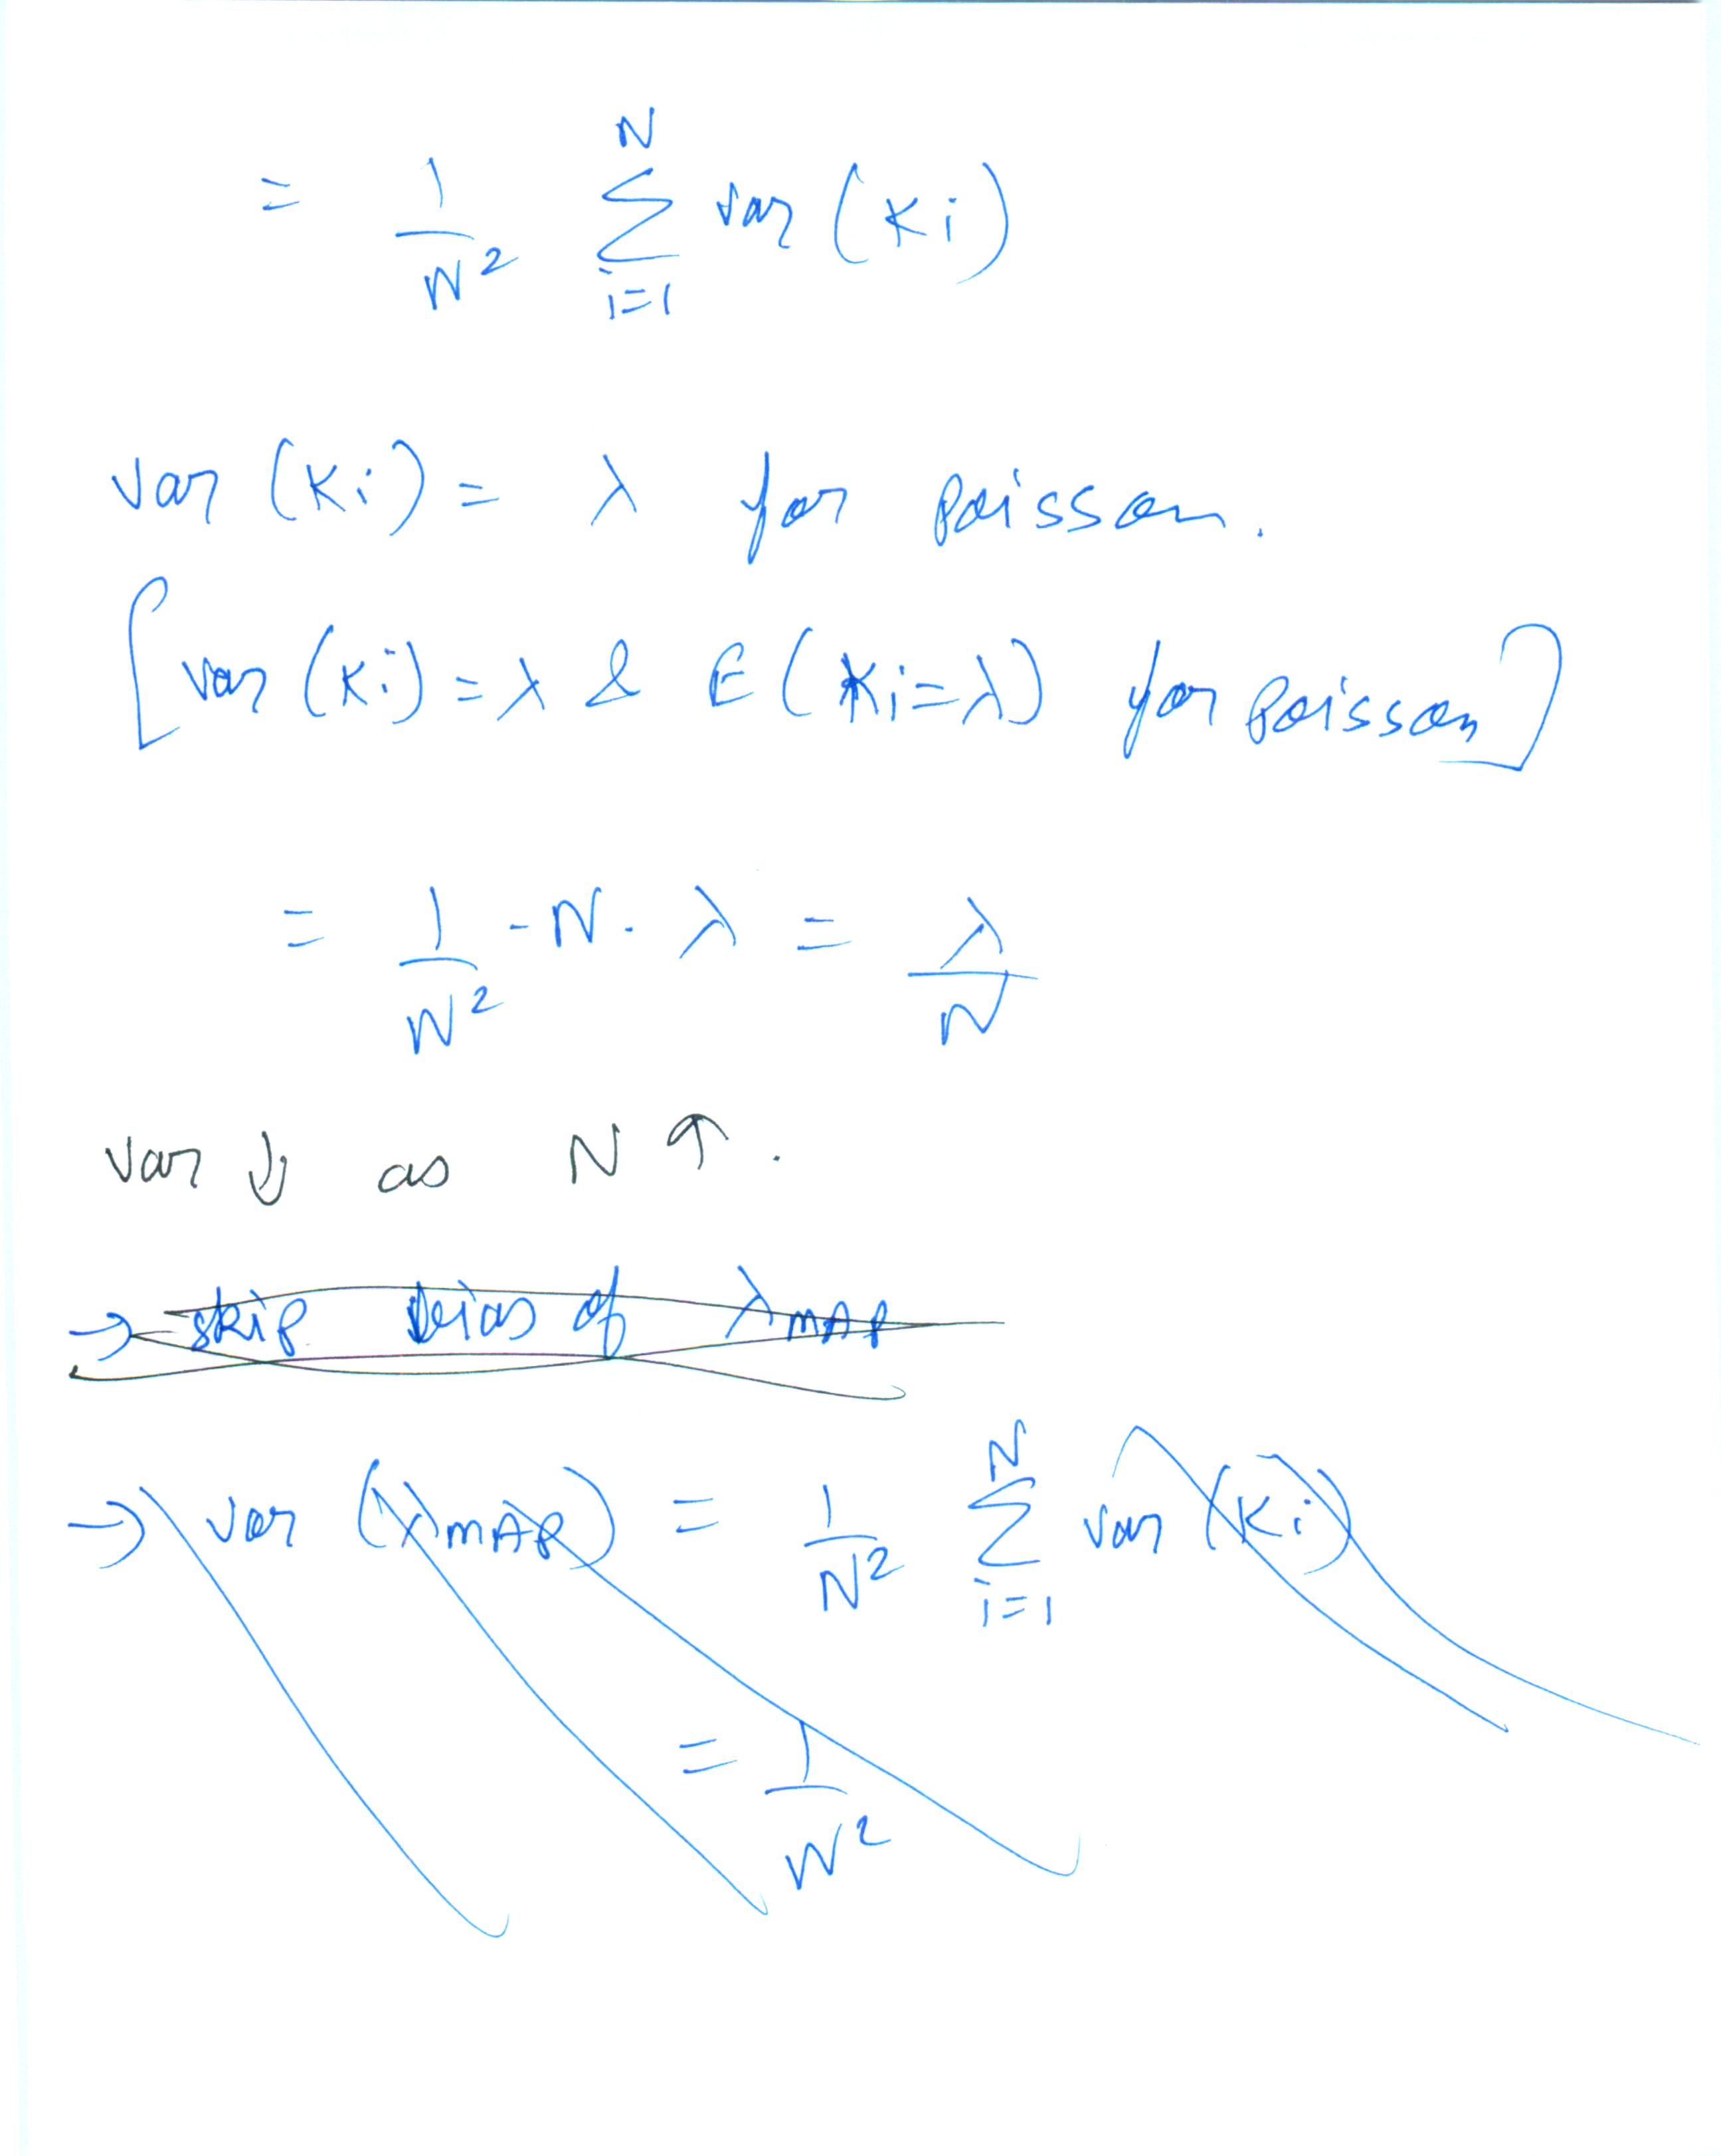 = 1/N² Σ_{i=1}^{N} var (Ki)
var (Ki) = λ for Poisson.
[var (Ki) = λ & E(Ki=λ) for Poisson]
= 1/N² · N · λ = λ/N
var ↓ as N ↑.
→ skip bias of λMAP
→ var (λMAP) = 1/N² Σ_{i=1}^{N} var (Ki)
= 1/N²